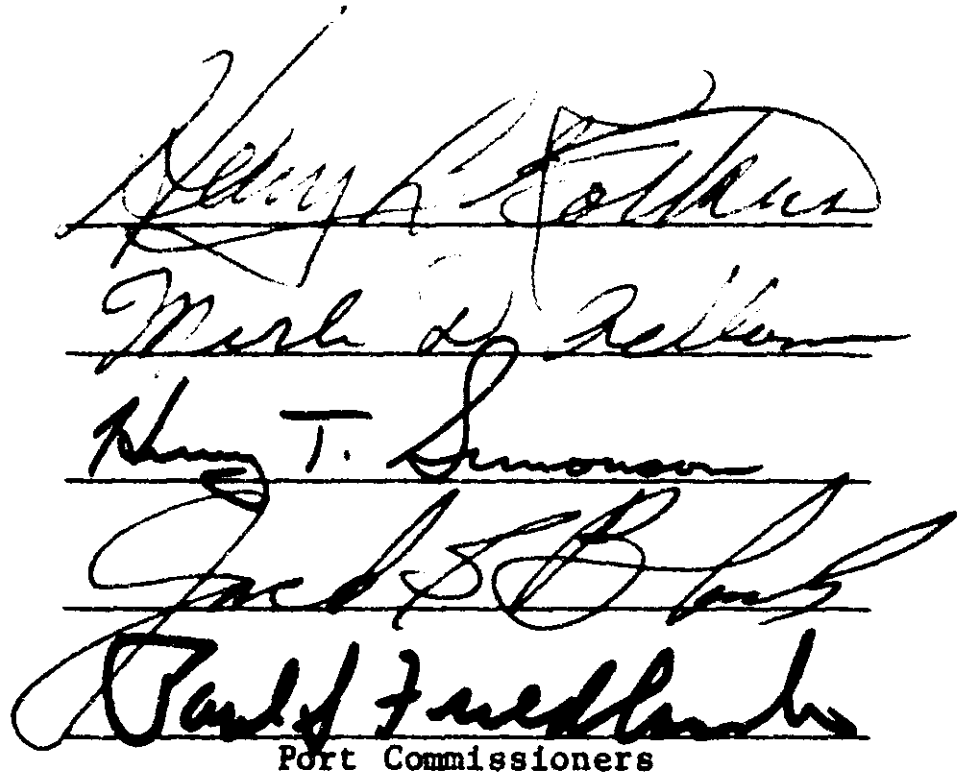 Henry L. Kotkins
Merle D. Adlum
Henry T. Simonson
Jack S Block
Paul S Friedlander
Port Commissioners